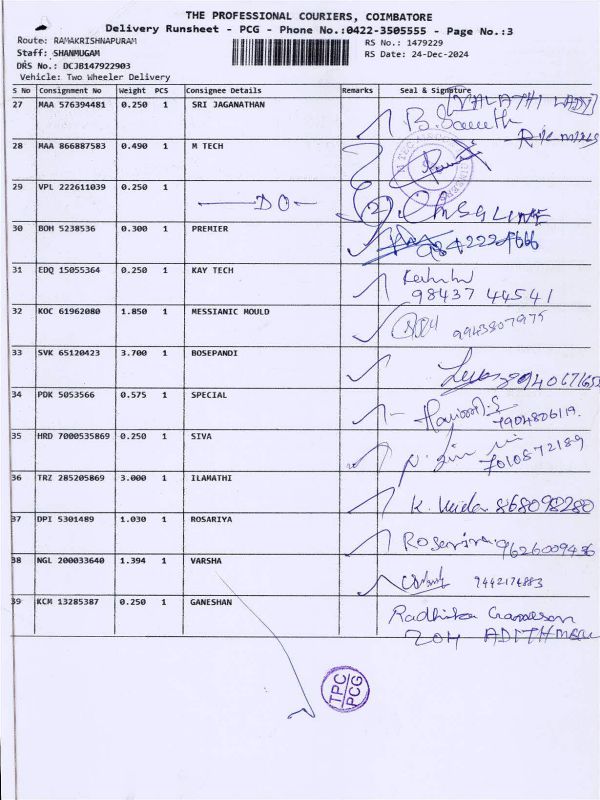 THE PROFESSIONAL COURIERS, COIMBATORE
Delivery Runsheet - PCG - Phone No.:0422-3505555 - Page No.:3
Route: RAMAKRISHNAPURAM RS No.: 1479229
Staff: SHANMUGAM RS Date: 24-Dec-2024
DRS No.: DCJB147922903
Vehicle: Two Wheeler Delivery
S No Consignment No Weight PCS Consignee Details Remarks Seal & Signature
27 MAA 576394481 0.250 1 SRI JAGANATHAN
28 MAA 866887583 0.490 1 M TECH
29 VPL 222611039 0.250 1 DO
30 BOM 5238536 0.300 1 PREMIER
31 EDQ 15055364 0.250 1 KAY TECH
98437 44541
32 KOC 61962080 1.850 1 MESSIANIC MOULD 9943807975
33 SVK 65120423 3.700 1 BOSEPANDI
34 PDK 5053566 0.575 1 SPECIAL
7904806119.
35 HRD 7000535869 0.250 1 SIVA 7010872189
36 TRZ 285205869 3.000 1 ILAMATHI
868098280
37 DPI 5301489 1.030 1 ROSARIYA
9626009436
38 NGL 200033640 1.394 1 VARSHA
9442174883
39 KCM 13285387 0.250 1 GANESHAN Radhika
TPC
PCG